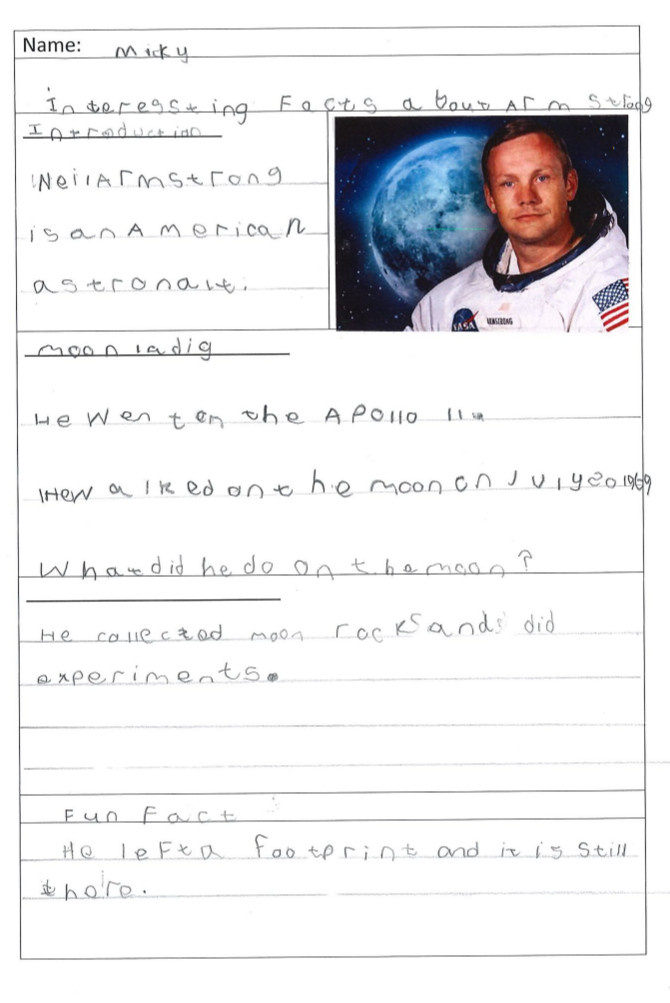 Name: Micky
Interegsting Facts about Armstrong
Introduction
Neil Armstrong
is an American
astronait.
NASA ARMSTRONG
moon ladig
He went on the APollo 11.
He walked on the moon on July 20 1969
What did he do on the moon?
He collected moon rocks and did
experiments.
Fun Fact
He left a footprint and it is still
there.